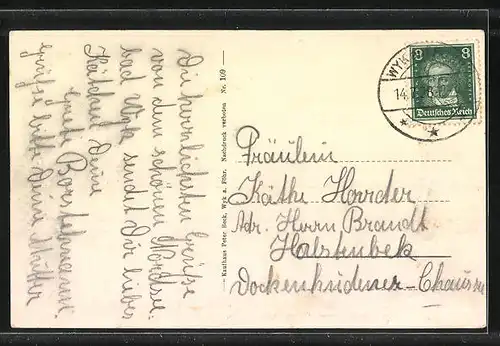 Die herzlichsten Grüsse
von dem schönen Nordsee-
bad Wyk sendet Dir liebes
Käthchen Deine
Grete Borstelmann.
Grüsse bitte Deine Mutter
Kaufhaus Peter Heck, Wyk a. Föhr. Nachdruck verboten Nr. 109
8 8
Deutsches Reich
WYK
14.7
Fräulein
Käthe Horrder
Adr. Herrn Brandt
Halstenbek
Dockenhudener-Chaussee